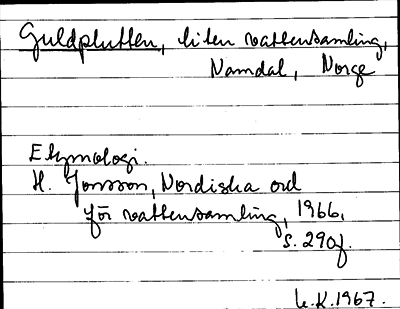 Guldplutten, liten vattensamling,
Namdal, Norge
Etymologi.
H. Jonsson, Nordiska ord
för vattensamling, 1966,
s. 290f.
U.K. 1967.